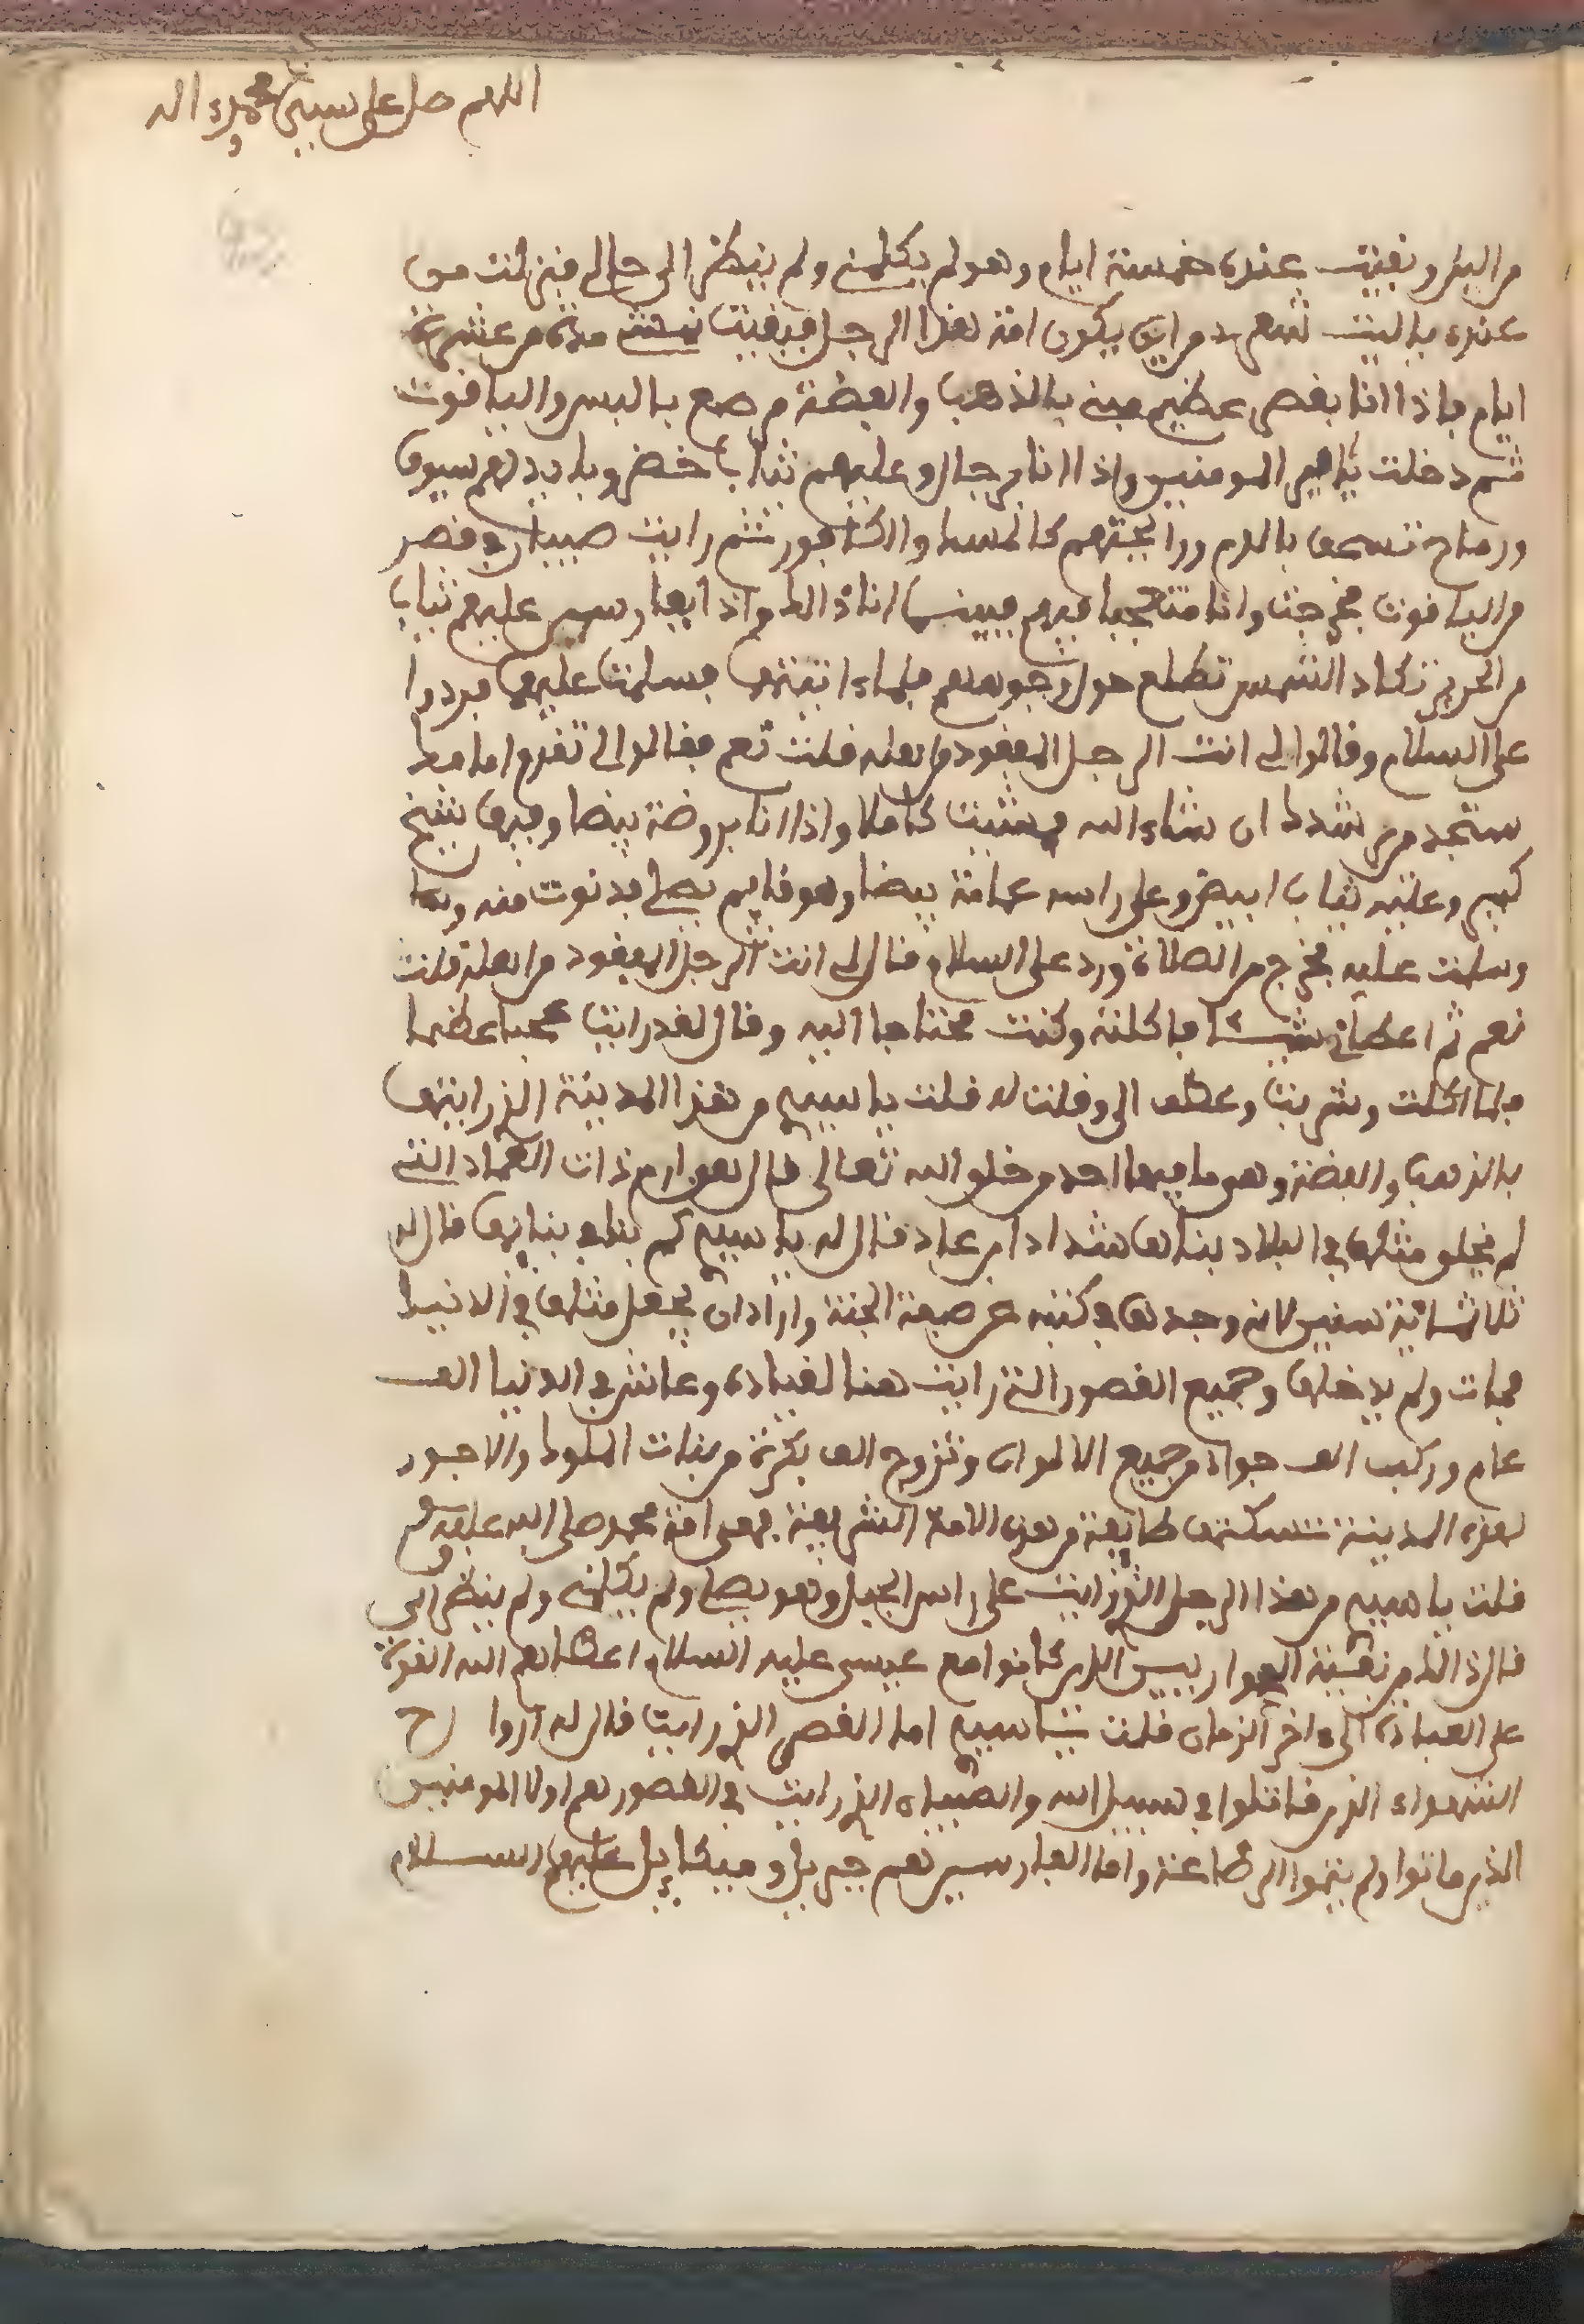 اللهم صل على سيدنا محمد واله
من البر وبقيت عنده خمسة ايام وهو لم يكلمني ولم ينظر الى حالي فنزلت من
عنده ياليت شعري من اين يكون امة هذا الرجل فبقيت نمشي مدة من عشرة
ايام فاذا انا بقصر عظيم مبني بالذهب والفضة مرصع بالدر والياقوت
ثم دخلت يا امير المومنين واذا انا برجال وعليهم ثياب خضر وبايديهم سيوف
ورماح تسعى بالدم ورائحتهم كالمسك والكافور ثم رايت صبيان في قصر
من الياقوت فخرجت وانا متعجبا فيهم فبينما انا كذالك واذا بفارسين عليهم ثياب
من الحرير تكاد الشمس تطلع حول وجوههم فلما اتيتهم فسلمت عليهم فردوا
علي السلام وقالوا لي انت الرجل المفقود من اهله قلت نعم فقالوا لي تقدم امامك
ستجد من يرشدك ان شاء الله فمشيت كاملا واذا انا بروضة بيضا وفيها شيخ
كبير وعليه ثياب ابيض وعلى راسه عمامة بيضا وهو قايم يصلي فدنوت منه
وسلمت عليه فخرج من الصلاة ورد علي السلام قال لي انت الرجل المفقود من اهله قلت
نعم ثم اعطاني شيئا فاكلته وكنت محتاجا اليه وقال لقد رايت عجبا عظيما
فلما اكلت وشربت وعطف الي وقلت له قلت يا سيدي من هذا المدينة الذي رايتها
بالذهب والفضة وهو ما فيها احد من خلق الله تعالى قال هو ارم ذات العماد التي
لم يخلق مثلها في البلاد بناها شداد ابن عاد قال له يا سيدي كم بقى في بنايها قال له
ثلاثمائة سنين لانه وجدها في كتبه عن صفة الجنة واراد ان يجعل مثلها في الدنيا
فمات ولم يدخلها وجميع القصور التي رايت هنا لقياده وعاش في الدنيا الف
عام وركب الف جواد من جميع الالوان وتزوج الف بكرة من بنات الملوك والاجود
هذه المدينة تسكنها طايفة من هذه الامة الشريفة فهي امة محمد صلى الله عليه وسلم
قلت يا سيدي من هذا الرجل الذي رايت على راس الجبل وهو يصلي ولم يكلمني ولم ينظر الي
قال ذالك من بقية الحواريين الذين كانوا مع عيسى عليه السلام اعطاهم الله القوة
على العبادة الى اخر الزمان قلت يا سيدي اما القصر الذي رايت قال له ارواح
الشهداء الذين قاتلوا في سبيل الله والصبيان الذي رايت في القصور هم اولاد المومنين
الذين ماتوا ولم يبلغوا الى طاعته واما الفارسين هم جبريل وميكاييل عليهم السلام